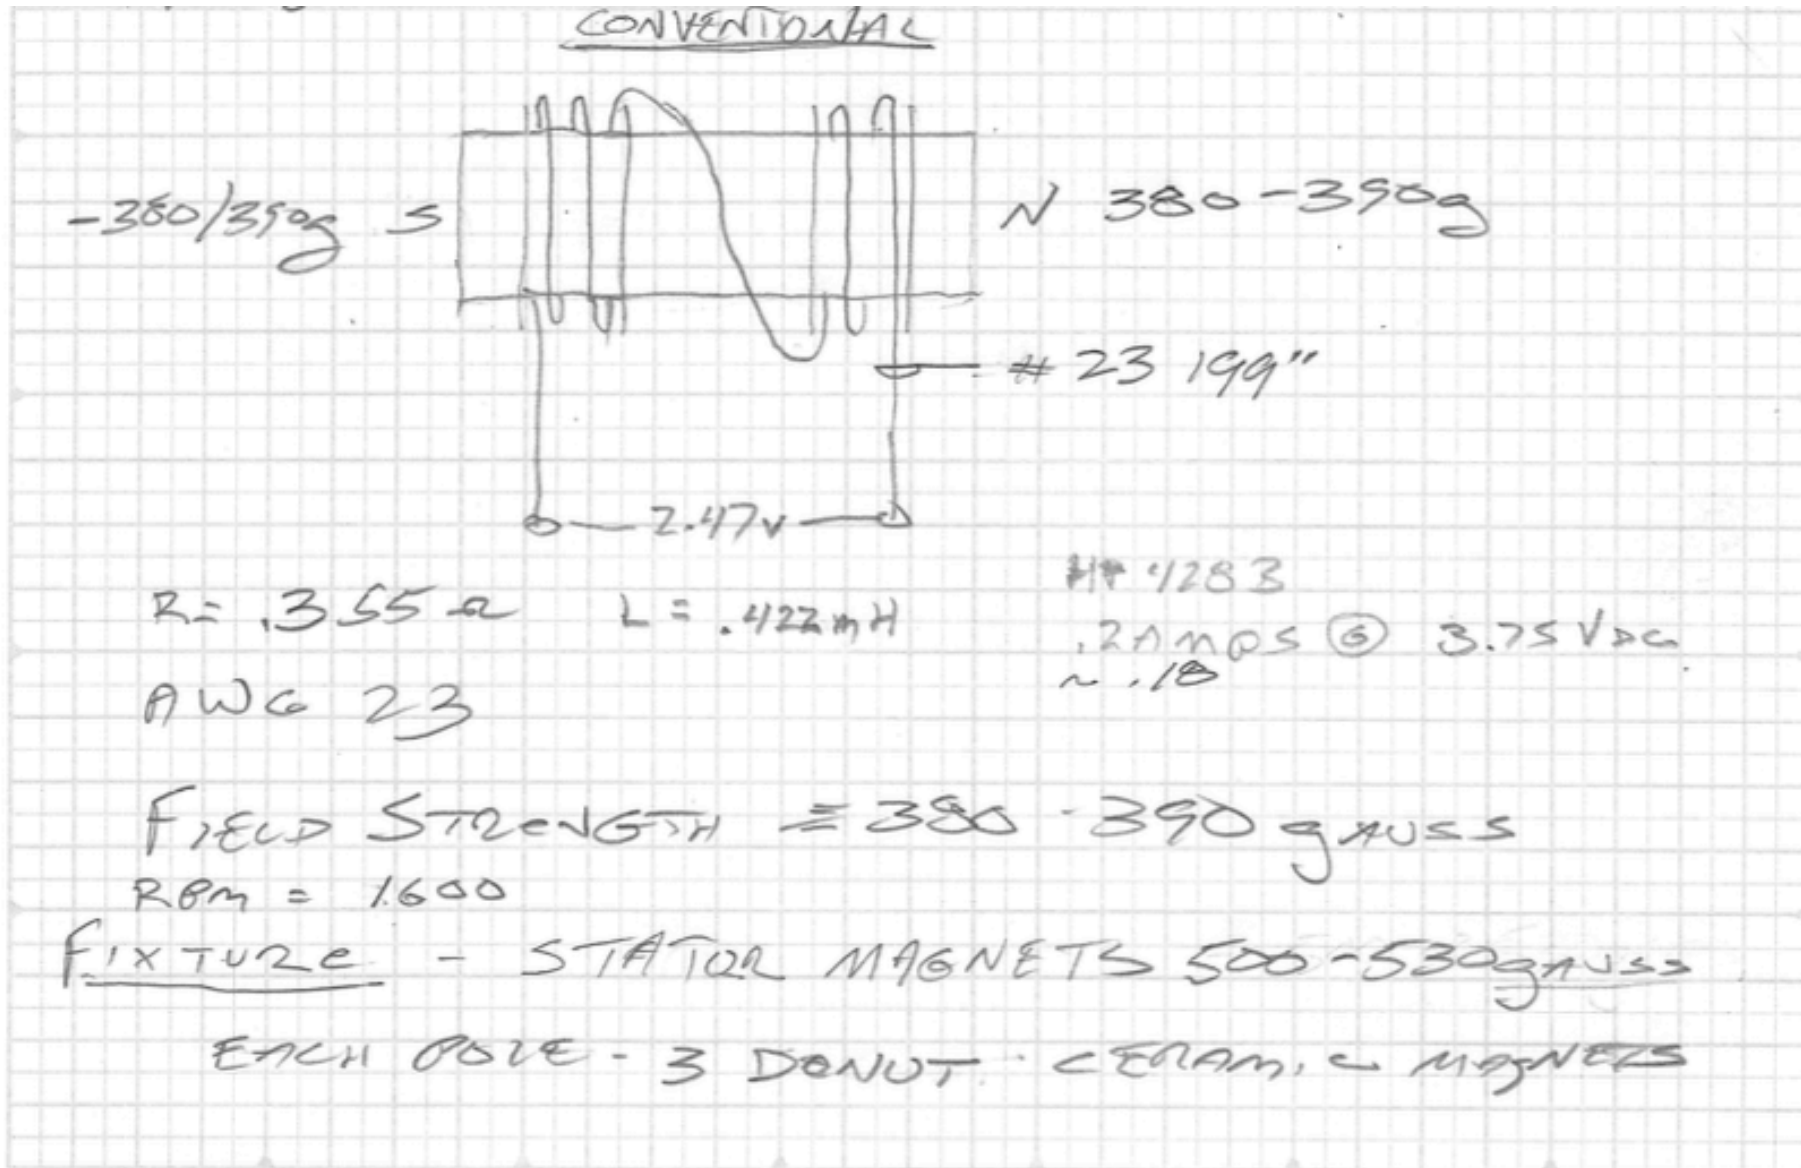 CONVENTIONAL
-380/390g S
N 380-390g
# 23 199"
2.47v
R= .355 Ω L= .422mH
HP 4283
.2Amps @ 3.75 VDC
~ .18
AWG 23
FIELD STRENGTH = 380-390 gAUSS
RPM = 1600
FIXTURE - STATOR MAGNETS 500-530gAUSS
EACH POLE - 3 DONUT CERAMIC MAGNETS